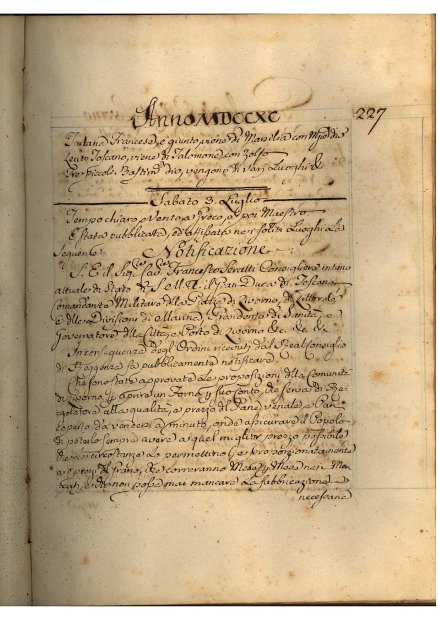 Anno MDCCXC
227
Tartana Francese, è giunto, viene di Marsilia con
Leuto Toscano, viene di Talamone con Zolfo
Tre piccoli Bastim.ti vengono di varj Luoghi &c
Sabato 3. Luglio
Tempo chiaro, e Vento a Greco, e poi Maestro
È stata pubblicata, ed affissata nei soliti Luoghi la
seguente
Notificazione
S. E. il Sig. Cav. Francesco Seratti Consigliere intimo
attuale di Stato di S. A. R. il Gran Duca di Toscana
Comandante Militare della Città di Livorno, del Littorale
e delle Divisioni di Marina, Presidente di Sanità, e
Governatore della Città, e Porto di Livorno &c. &c. &c.
In conseguenza degli Ordini ricevuti dal Real Consiglio
di Reggenza fa pubblicamente notificare
Che sono state approvate le proposizioni della Comunità
di Livorno di aprire un Forno per suo conto, che serva di Re-
golatore alla qualità, e prezzo del Pane venale, e
da vendersi a minuto, onde assicurare il Popolo
di poterlo sempre avere a quel miglior prezzo possibile
che le circostanze lo permettino, e proporzionatamente
ai prezzi del Grano, che correranno Mese per Mese nei Mer-
cati, e che non possa mai mancare la fabbricazione
necessaria